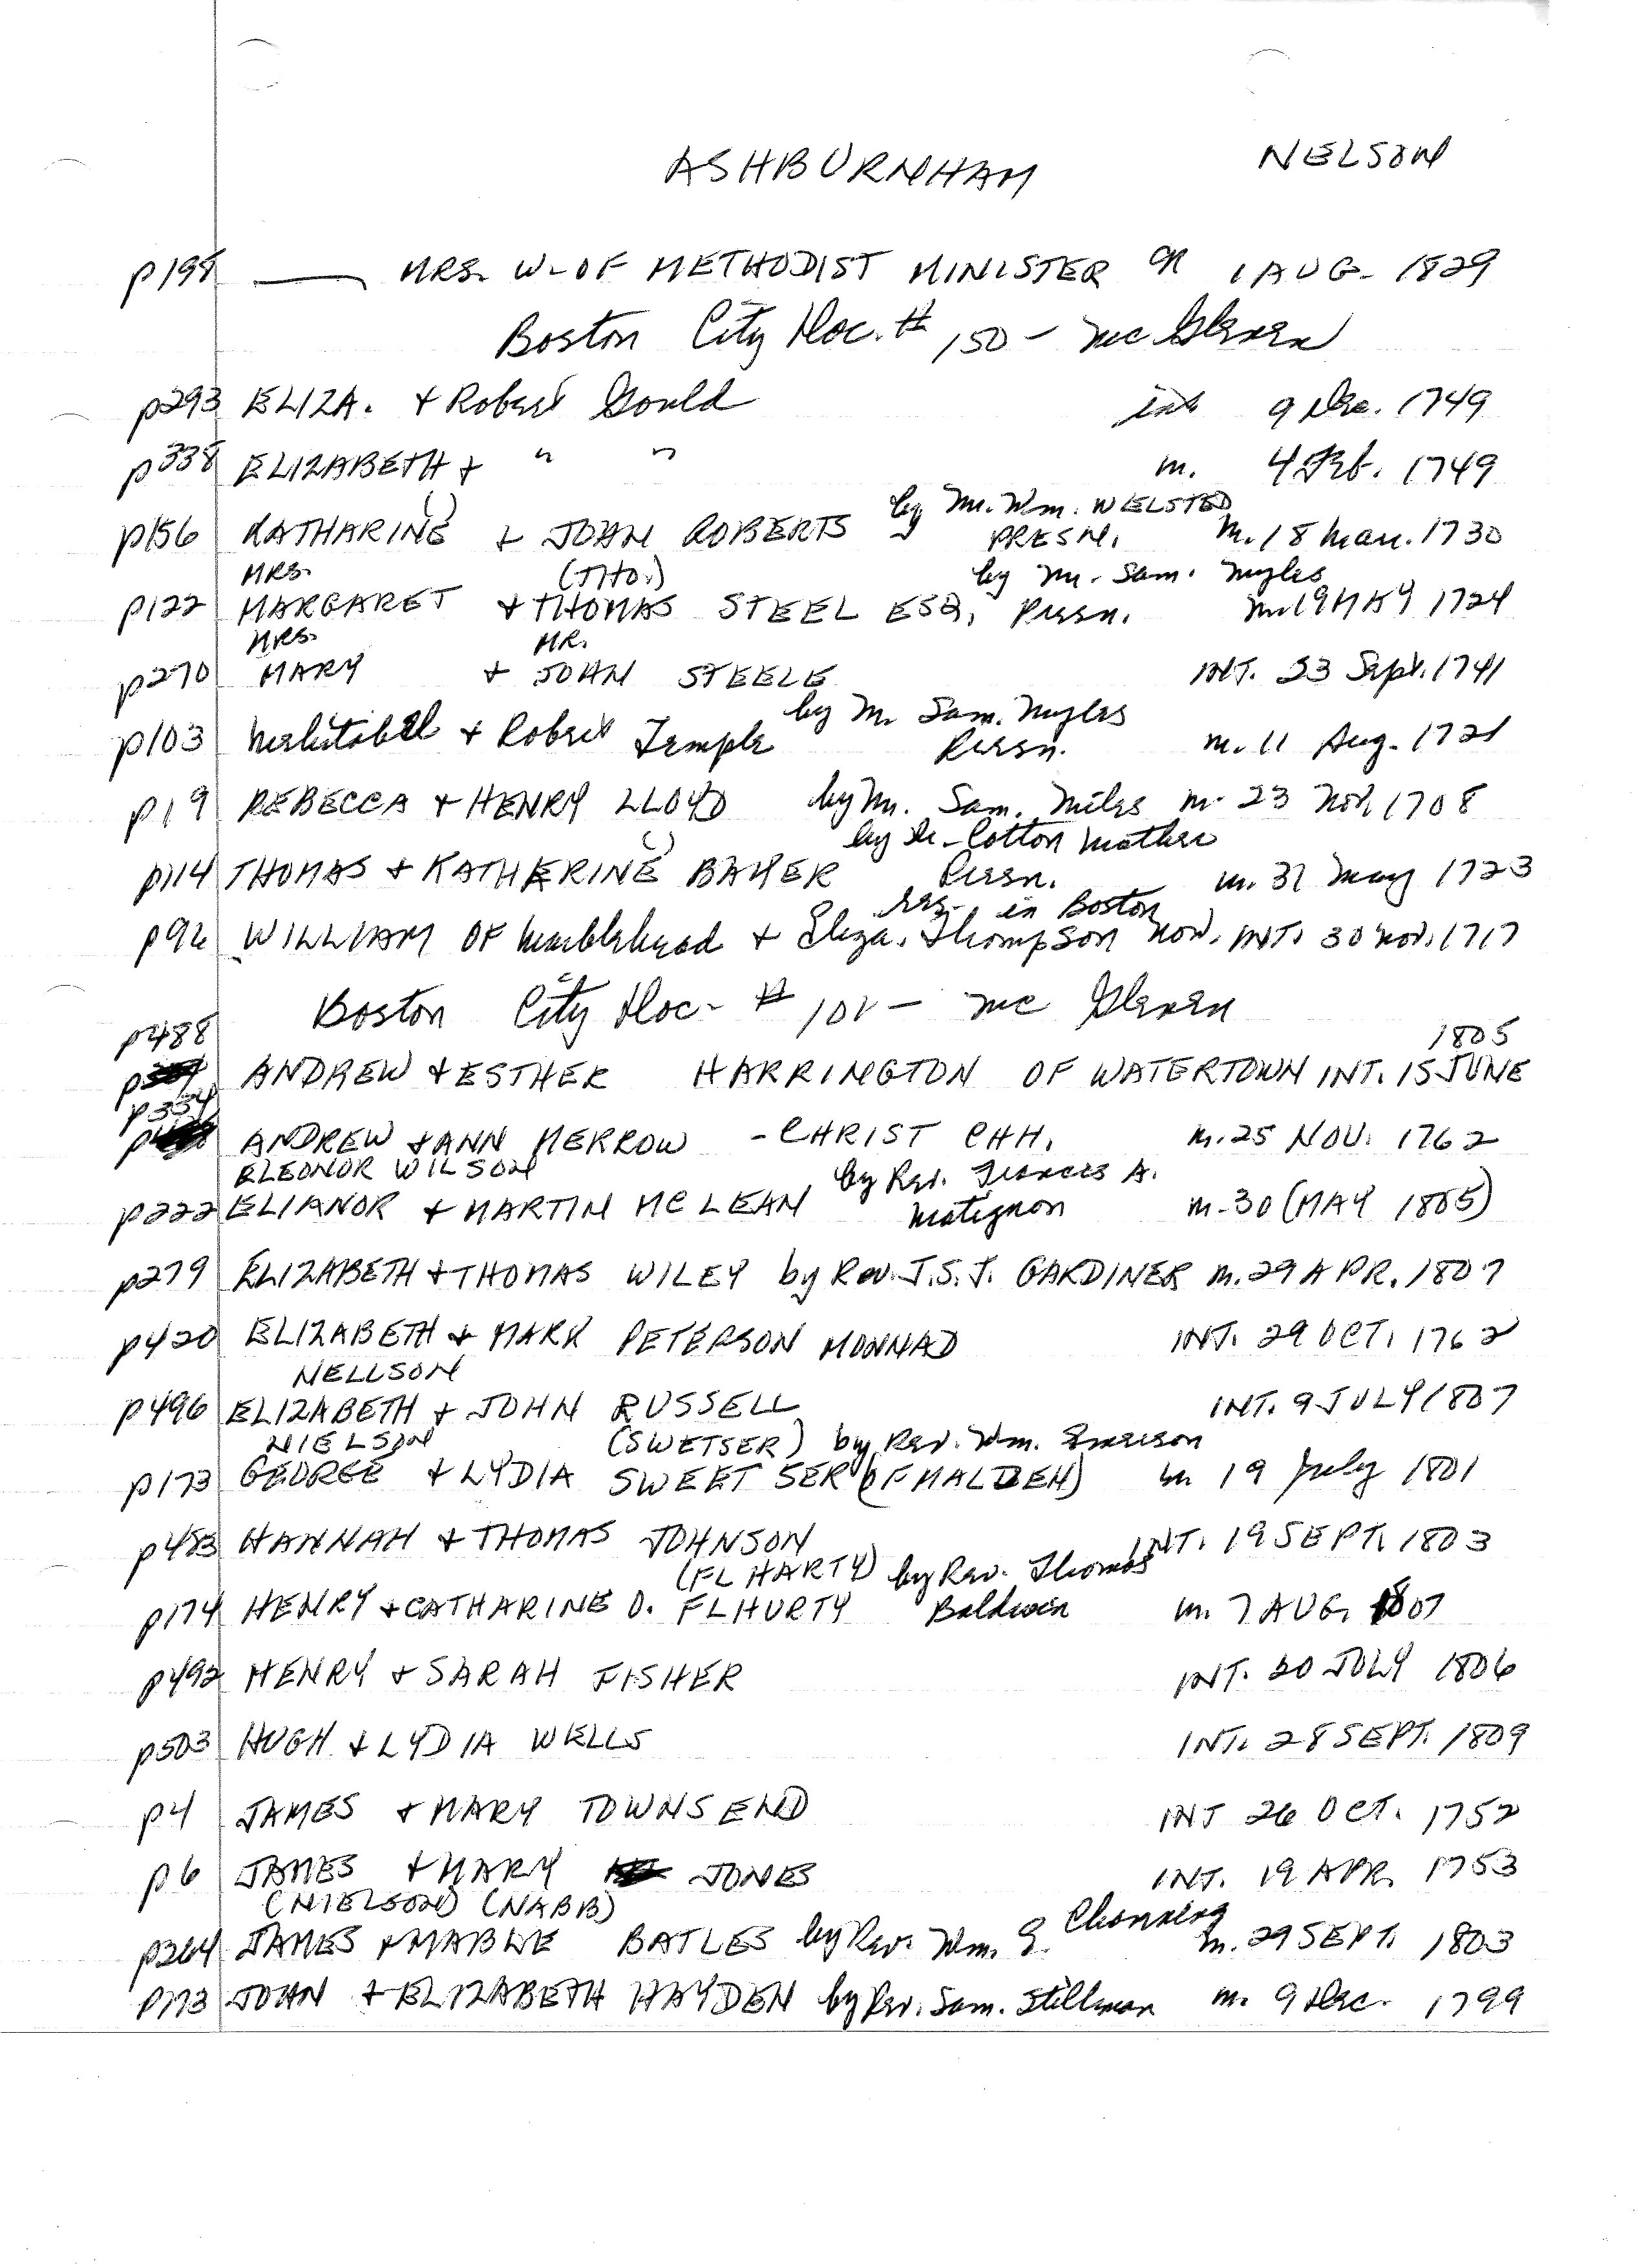 ASHBURNHAM NELSON
p198 —— MRS. W- OF METHODIST MINISTER 1 AUG. 1829
Boston City Doc. # 150 - Mc Glenen
p293 ELIZA. + Robert Gould int 9 Dec. 1749
p338 ELIZABETH + " " m. 4 Feb. 1749
by Mr. Wm. WELSTED
p156 KATHARINE + JOHN ROBERTS PRESN. m. 18 Mar. 1730
MRS. (THO.) by Mr. Sam. Myles
p122 MARGARET + THOMAS STEEL ESQ. Presn. m. 19 MAY 1724
MRS. MR.
p270 MARY + JOHN STEELE INT. 23 Sept. 1741
by Mr. Sam. Myles
p103 Mehitabell + Robert Temple Presn. m. 11 Aug. 1721
p19 REBECCA + HENRY LLOYD by Mr. Sam. Miles m. 23 Nov. 1708
by Dr. Cotton Mather
p114 THOMAS + KATHERINE BAKER Presn. m. 31 May 1723
res. in Boston
p92 WILLIAM OF Marblehead + Eliza. Thompson now. INT. 30 Nov. 1717
Boston City Doc. # 101 - Mc Glenen
p488 1805
ANDREW + ESTHER HARRINGTON OF WATERTOWN INT. 15 JUNE
p334
ANDREW + ANN MERROW - CHRIST CHH. m. 25 NOV. 1762
ELEONOR WILSON by Rev. Frances A.
p222 ELIANOR + MARTIN MCLEAN Matignon m. 30 (MAY 1805)
p279 ELIZABETH + THOMAS WILEY by Rev. J.S.J. GARDINER m. 29 APR. 1807
p420 ELIZABETH + MARK PETERSON MONNAD INT. 29 OCT. 1762
NELLSON
p496 ELIZABETH + JOHN RUSSELL INT. 9 JULY 1807
NIELSON (SWETSER) by Rev. Wm. Emerson
p173 GEORGE + LYDIA SWEETSER (OF MALDEN) m 19 July 1801
p483 HANNAH + THOMAS JOHNSON INT. 19 SEPT. 1803
(FLHARTY) by Rev. Thomas
p174 HENRY + CATHARINE O. FLHURTY Baldwin m. 7 AUG. 1807
p492 HENRY + SARAH FISHER INT. 20 JULY 1806
p503 HUGH + LYDIA WELLS INT. 28 SEPT. 1809
p4 JAMES + MARY TOWNSEND INT 26 OCT. 1752
p6 JAMES + MARY JONES INT. 19 APR. 1753
(NIELSON) (NABB) Channing
p264 JAMES + MABLE BATLES by Rev. Wm. E. m. 29 SEPT. 1803
p173 JOHN + ELIZABETH HAYDEN by Rev. Sam. Stillman m. 9 Dec. 1799